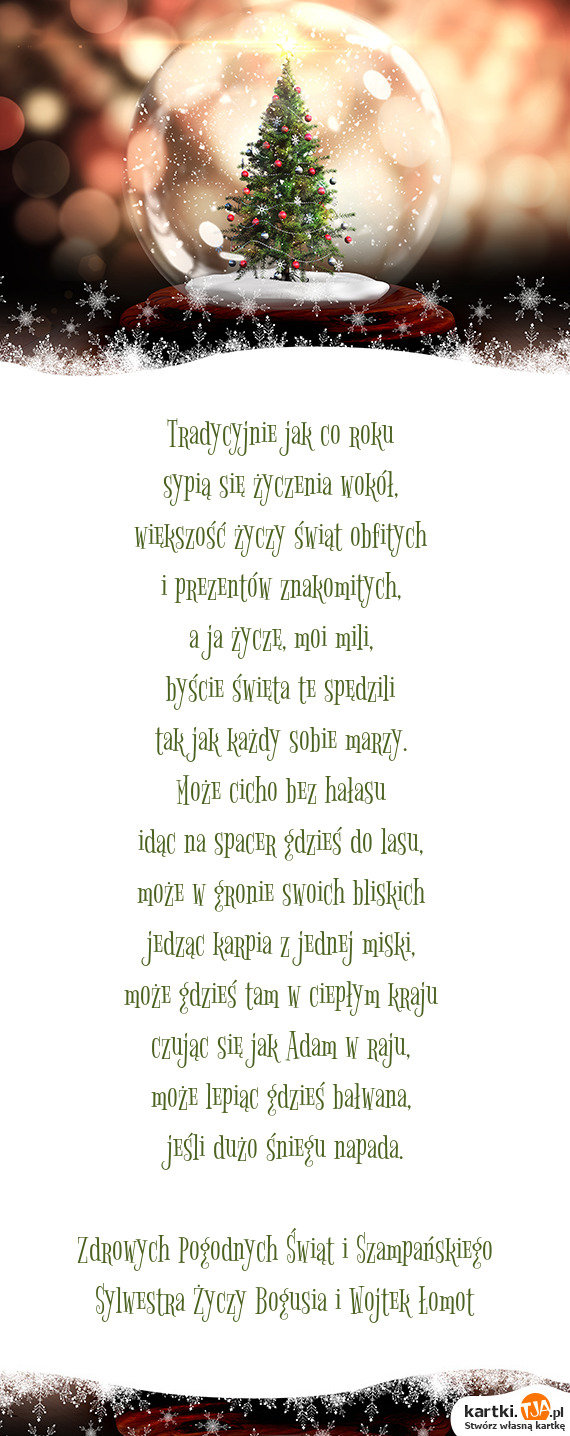 Tradycyjnie jak co roku
sypią się życzenia wokół,
większość życzy świąt obfitych
i prezentów znakomitych,
a ja życzę, moi mili,
byście święta te spędzili
tak jak każdy sobie marzy.
Może cicho bez hałasu
idąc na spacer gdzieś do lasu,
może w gronie swoich bliskich
jedząc karpia z jednej miski,
może gdzieś tam w ciepłym kraju
czując się jak Adam w raju,
może lepiąc gdzieś bałwana,
jeśli dużo śniegu napada.
Zdrowych Pogodnych Świąt i Szampańskiego
Sylwestra Życzy Bogusia i Wojtek Łomot
kartki.TJA.pl
Stwórz własną kartkę